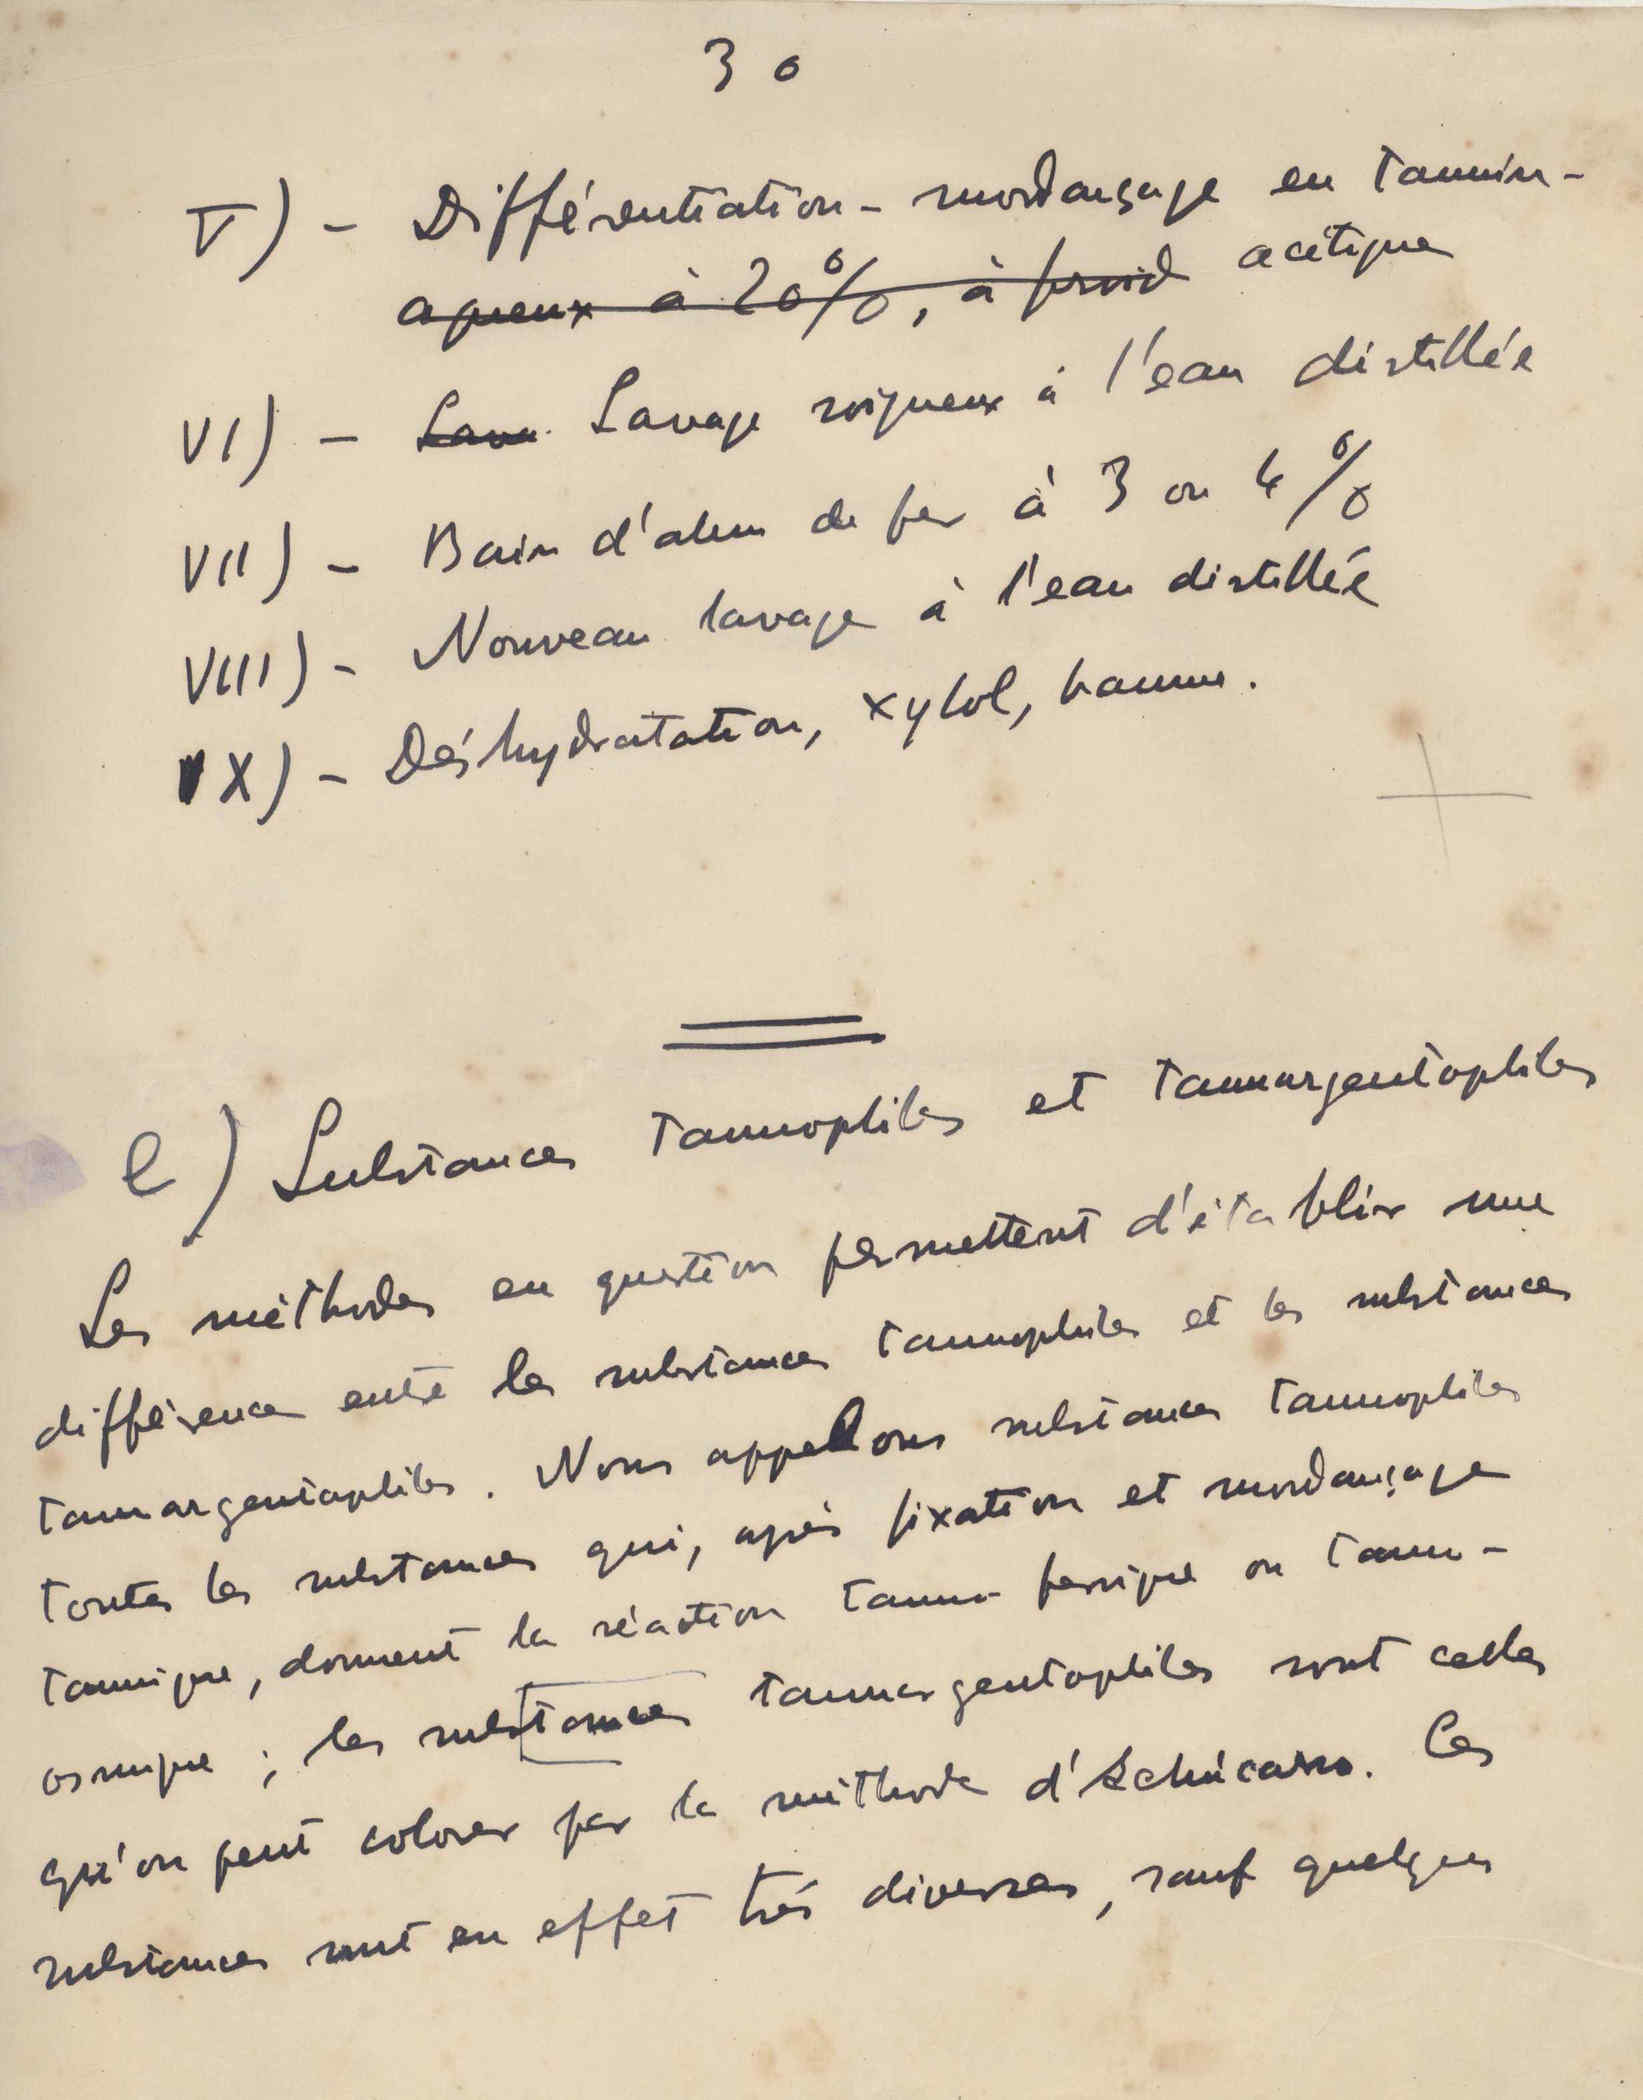 30
V) - Différentiation - mordançage en tannin -
aqueux à 20%, à froid acétique
VI) - Lava. Lavage soigneux à l'eau distillée
VII) - Bain d'alun de fer à 3 ou 4 %
VIII) - Nouveau lavage à l'eau distillée
IX) - Déshydratation, xylol, baume.
e) Substances tannophiles et tannargentophiles
Les méthodes en question permettent d'établir une
différence entre les substances tannophiles et les substances
tannargentophiles. Nous appellons substances tannophiles
toutes les substances qui, après fixation et mordançage
tannique, donnent la réaction tanno-ferrique ou tanno-
osmique ; les substances tannargentophiles sont celles
qu'on peut colorer par la méthode d'Achúcarro. Ces
substances sont en effet très diverses, sauf quelques